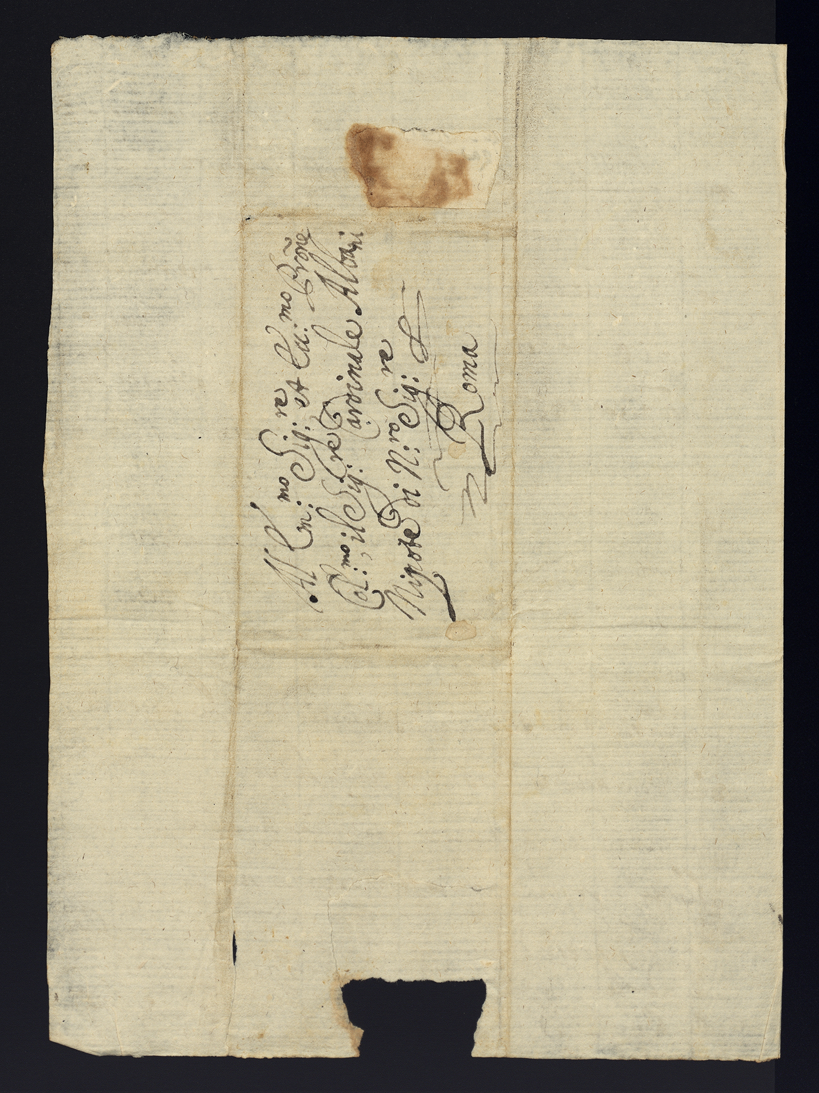 All' Em:mo Sig:re Sig:re et Pa:mo Prõne
Col:mo, il Sig:re Cardinale Albani
Nipote di N:ro Sig:re &
Roma